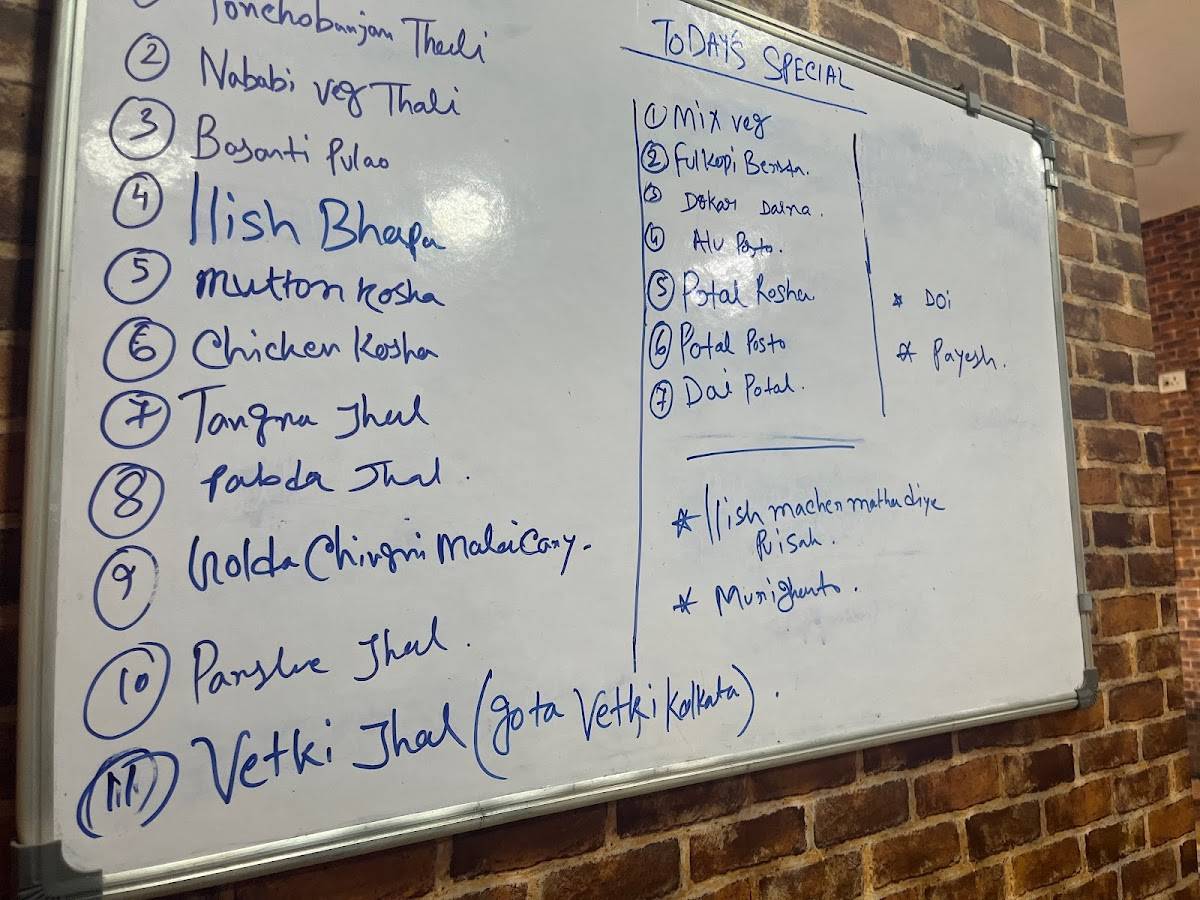 Thali
2 Nababi veg Thali
3 Basanti Pulao
4 Ilish Bhapa
5 Mutton Kosha
6 Chicken Kosha
7 Tangra Jhal
8 Pabda Jhal.
9 Golda Chingri Malai Cary.
10 Parshe Jhal.
11 Vetki Jhal (gota Vetki Kolkata).
TODAY'S SPECIAL
1 Mix veg
2 Fulkopi
3 Dokar Dalna.
4 Alu Posto.
5 Potal Kosha
6 Potal Posto
7 Dai Potal.
* Doi
* Payesh.
* Ilish macher matha diye
Puisak.
* Murighonto.